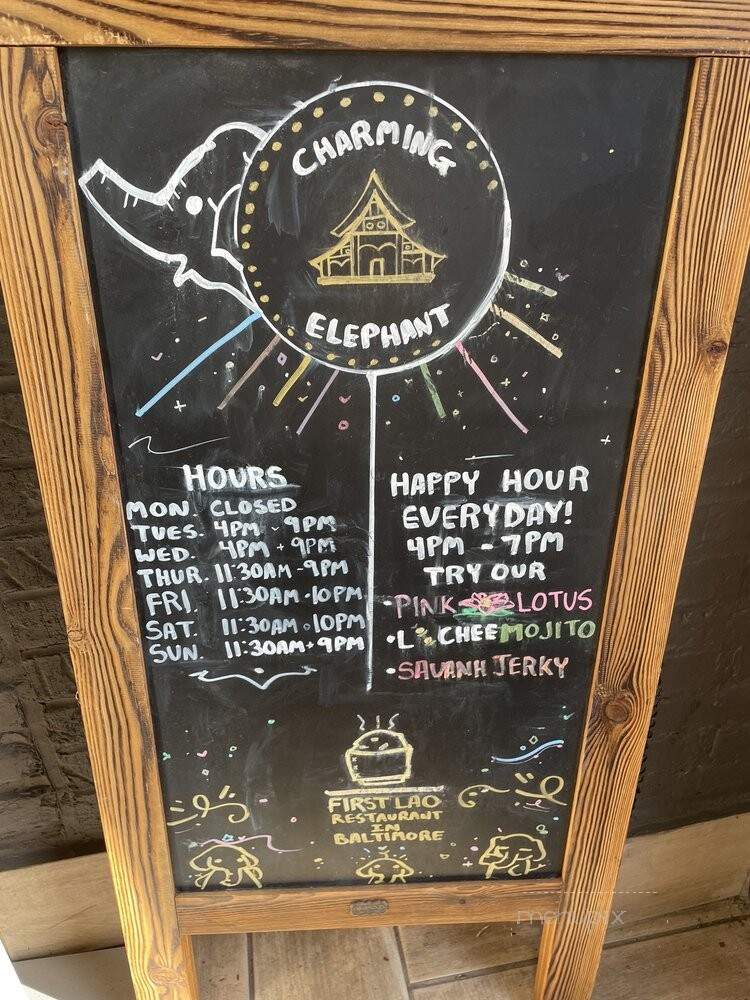 CHARMING
ELEPHANT
HOURS
MON. CLOSED
TUES. 4PM - 9PM
WED. 4PM - 9PM
THUR. 11:30AM - 9PM
FRI. 11:30AM - 10PM
SAT. 11:30AM - 10PM
SUN. 11:30AM - 9PM
HAPPY HOUR
EVERYDAY!
4PM - 7PM
TRY OUR
• PINK LOTUS
• LYCHEE MOJITO
• SAVANH JERKY
FIRST LAO
RESTAURANT
IN
BALTIMORE
menupix